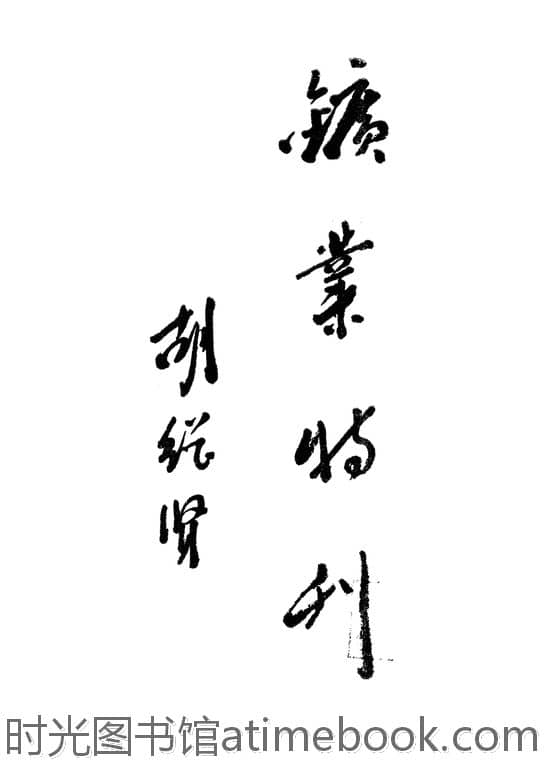 鑛業特刊
胡继贤
时光图书馆atimebook.com